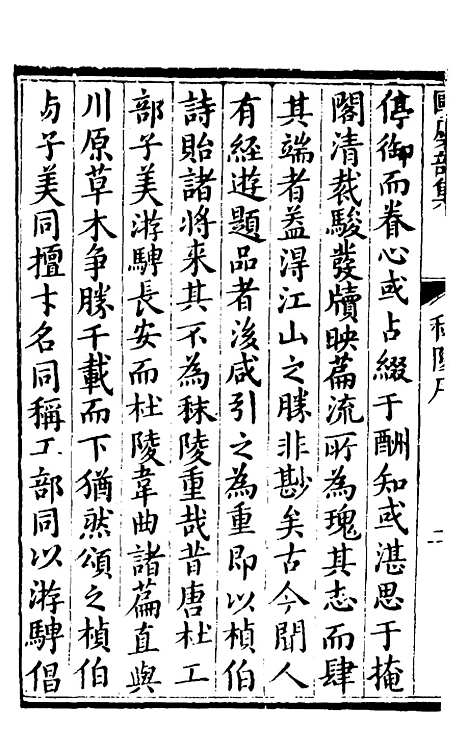 停御而眷心或占綴于酬知或湛思于掩
閣清裁駿發牘映篇流所為瑰其志而肆
其端者益得江山之勝非尠矣古今聞人
有經遊題品者後咸引之為重即以楨伯
詩貽諸將来其不為秣陵重哉昔唐杜工
部子美游騁長安而杜陵韋曲諸篇直與
川原草木争勝千載而下猶然頌之楨伯
与子美同擅才名同稱工部同以游騁倡
秣陵序
二